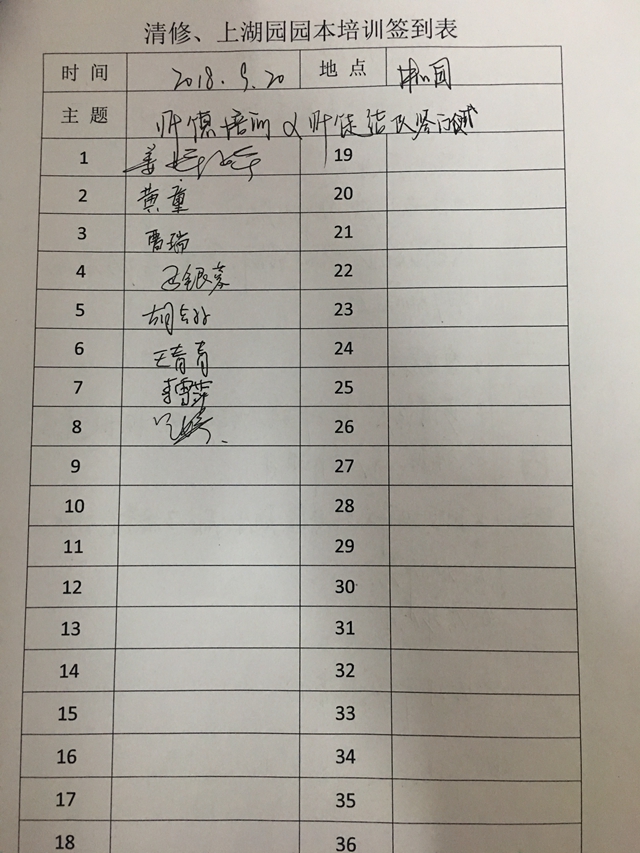 清修、上湖园园本培训签到表
时 间 2018.9.20 地 点
主 题 师德培训 师徒结队
1 19
2 黄童 20
3 曹瑞 21
4 22
5 23
6 王青青 24
7 李雪萍 25
8 26
9 27
10 28
11 29
12 30
13 31
14 32
15 33
16 34
17 35
18 36